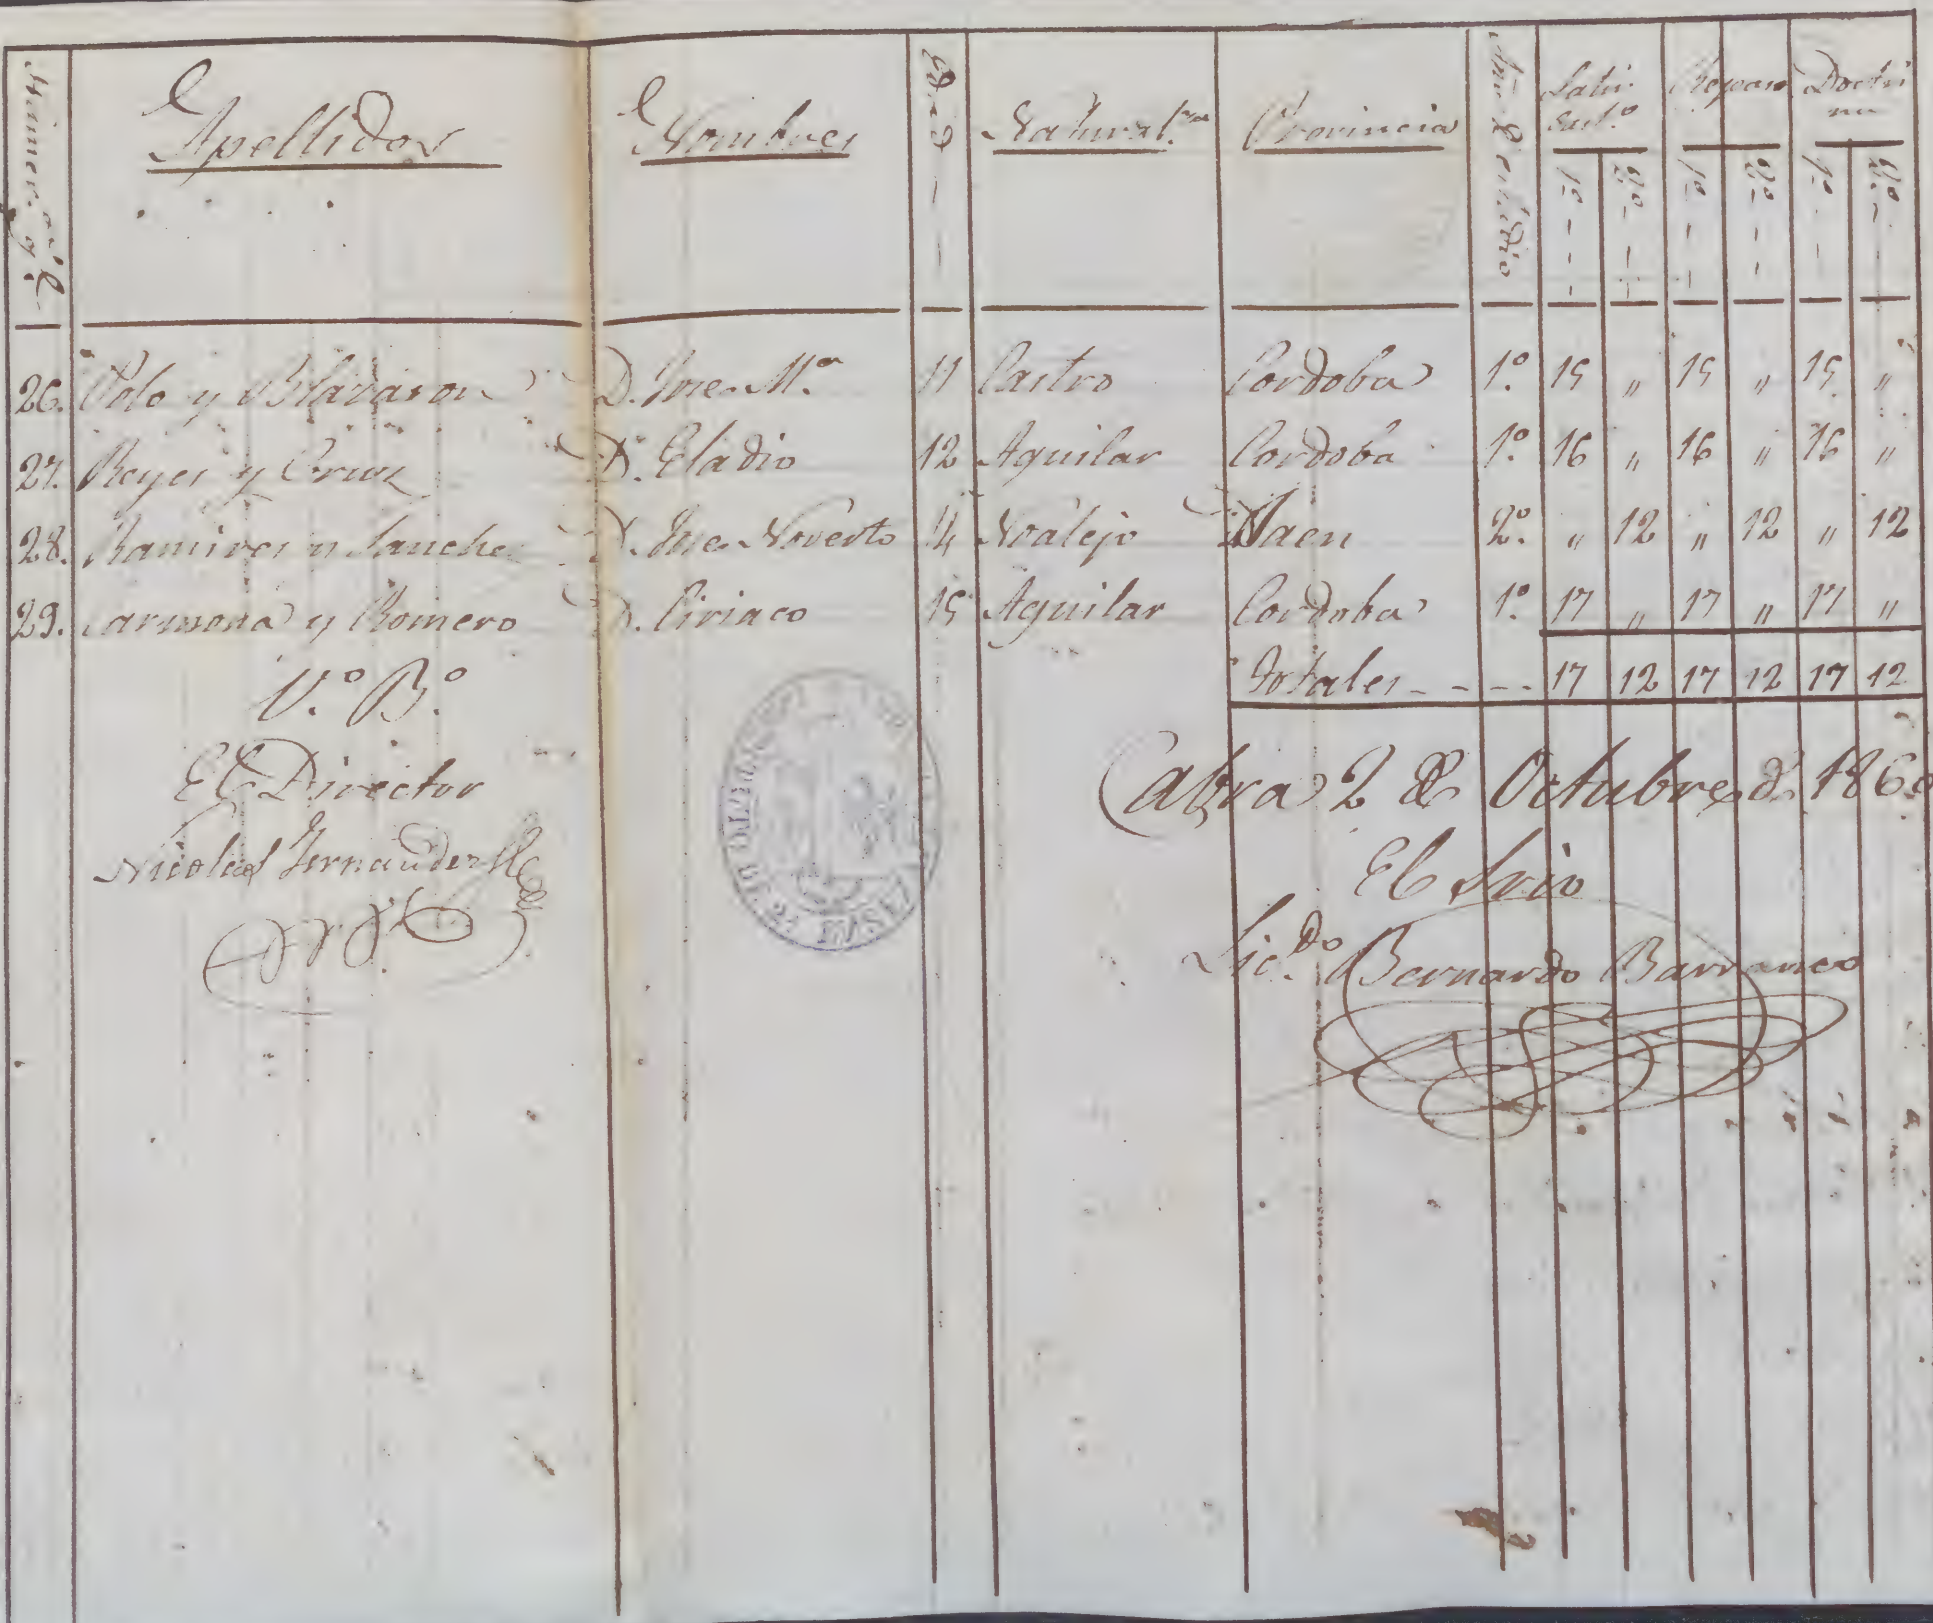 Apellidos Nombres Edad Natural.za Provincia Año de estudio Latin Cast.o Repaso Doctrina
1º 2º 1º 2º 1º 2º
26. Polo y D. Jose M.a 11 Castro Cordoba 1º. 15 " 15 " 15 "
27. Reyes y Cruz D. Eladio 12 Aguilar Cordoba 1º. 16 " 16 " 16 "
28. Ramires y Sanche D. Jose Noverto 14 Noalejo Jaen 2º. " 12 " 12 " 12
29. Carmona y Romero D. Ciriaco 15 Aguilar Cordoba 1º. 17 " 17 " 17 "
Totales - - - - 17 12 17 12 17 12
V.º B.º
El Director
Nicolas Fernandez
Cabra 2 de Octubre de 1860
El Srio
Lic.do Bernardo Barranco